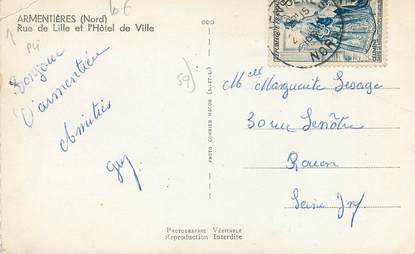 ARMENTIÈRES (Nord)
Rue de Lille et l'Hôtel de Ville
10€
59)
Bonjour
D'armentière
Amitiés
Guy
PHOTO COMBIER MACON (S.-ET-L.)
NORD
Melle Marguerite Lesage
30 rue Lenôtre
Rouen
Seine Inf.
PHOTOGRAPHIE VÉRITABLE
Reproduction Interdite